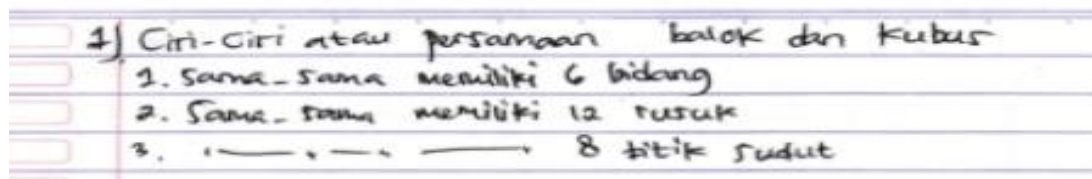 1) Ciri-Ciri atau persamaan balok dan kubus
1. Sama-sama memiliki 6 bidang
2. Sama-sama memiliki 12 rusuk
3. —— . — . —— 8 titik sudut